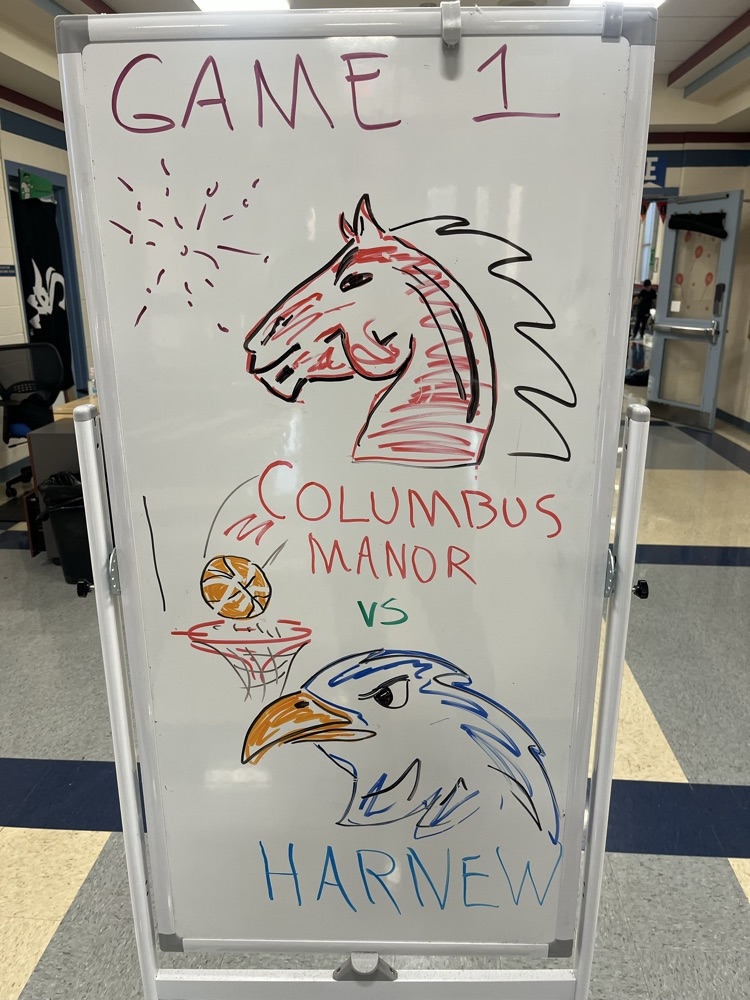 GAME 1
COLUMBUS
MANOR
VS
HARNEW